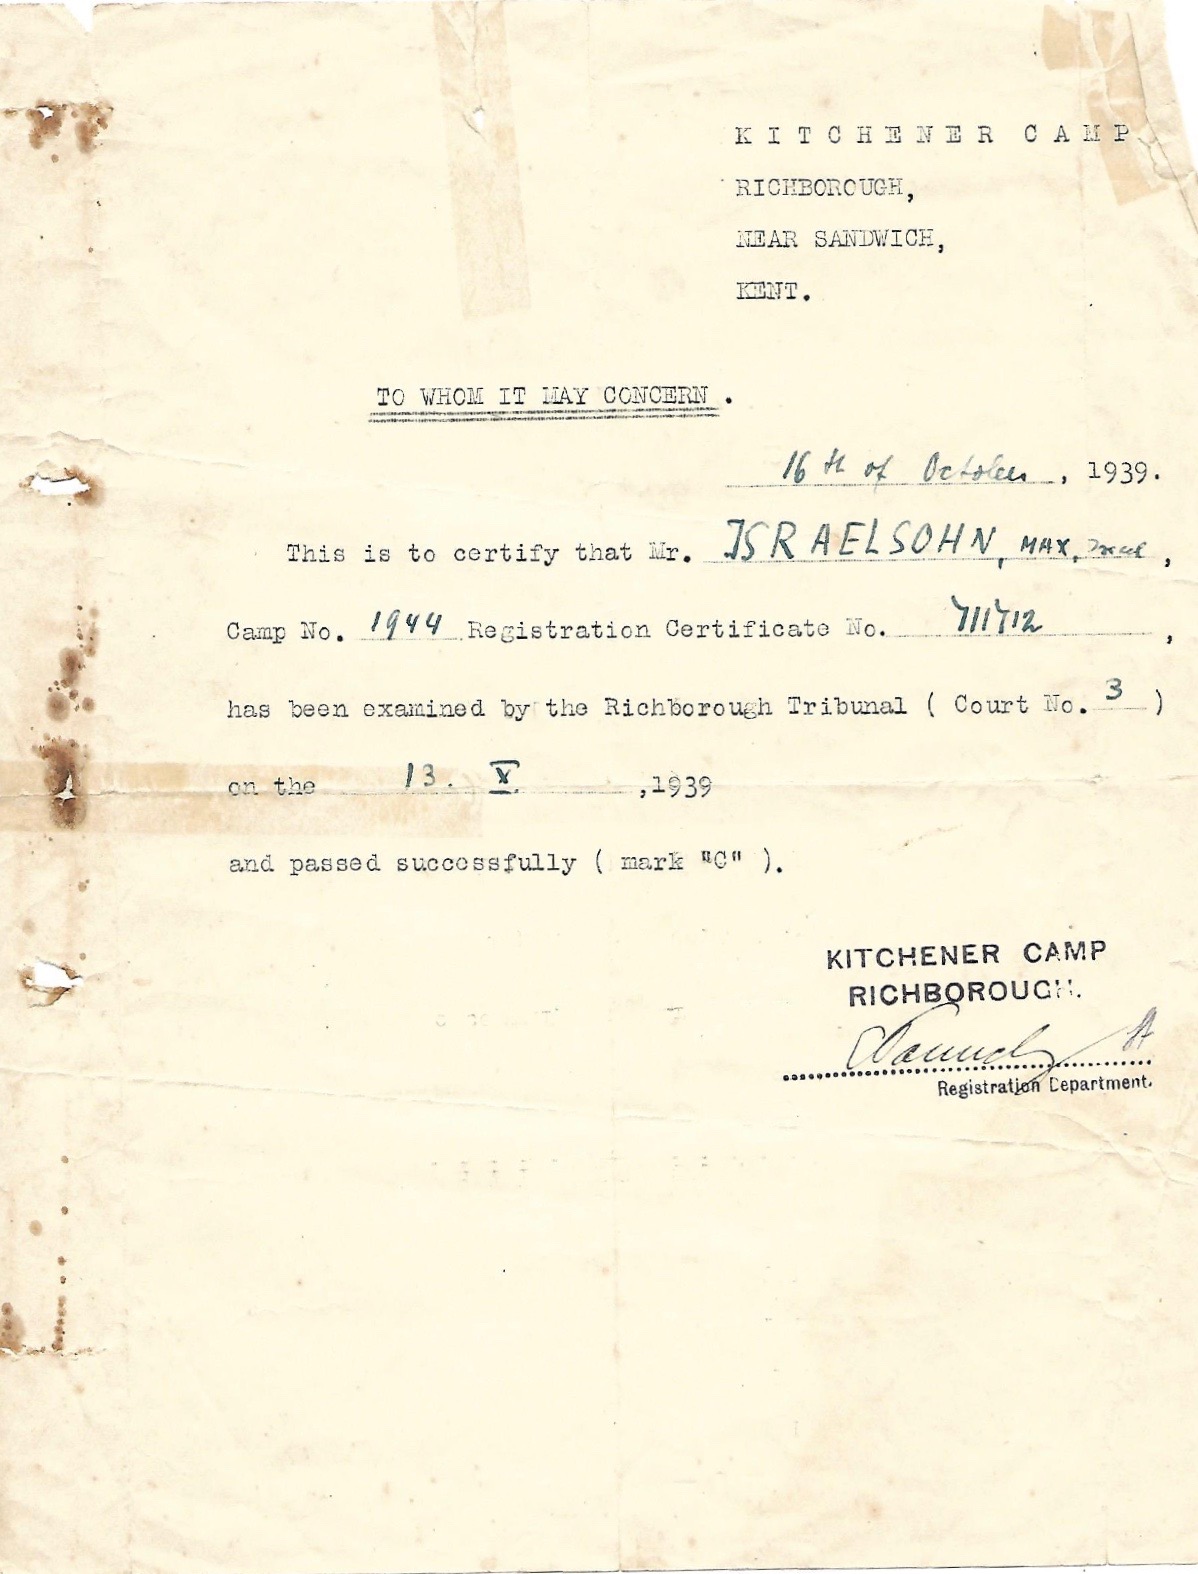 KITCHENER CAMP
RICHBOROUGH,
NEAR SANDWICH,
KENT.
TO WHOM IT MAY CONCERN.
16th of October, 1939.
This is to certify that Mr. ISRAELSOHN, MAX, Israel,
Camp No. 1944 Registration Certificate No. 711712,
has been examined by the Richborough Tribunal ( Court No. 3 )
on the 13. X. ,1939
and passed successfully ( mark "C" ).
KITCHENER CAMP
RICHBOROUGH.
Registration Department.